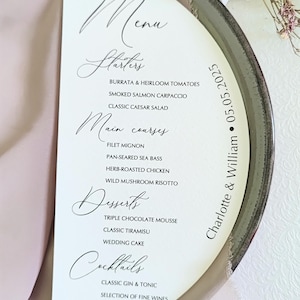 Menu
Starters
BURRATA & HEIRLOOM TOMATOES
SMOKED SALMON CARPACCIO
CLASSIC CAESAR SALAD
Main courses
FILET MIGNON
PAN-SEARED SEA BASS
HERB-ROASTED CHICKEN
WILD MUSHROOM RISOTTO
Desserts
TRIPLE CHOCOLATE MOUSSE
CLASSIC TIRAMISU
WEDDING CAKE
Cocktails
CLASSIC GIN & TONIC
SELECTION OF FINE WINES
Charlotte & William • 05.05.2025